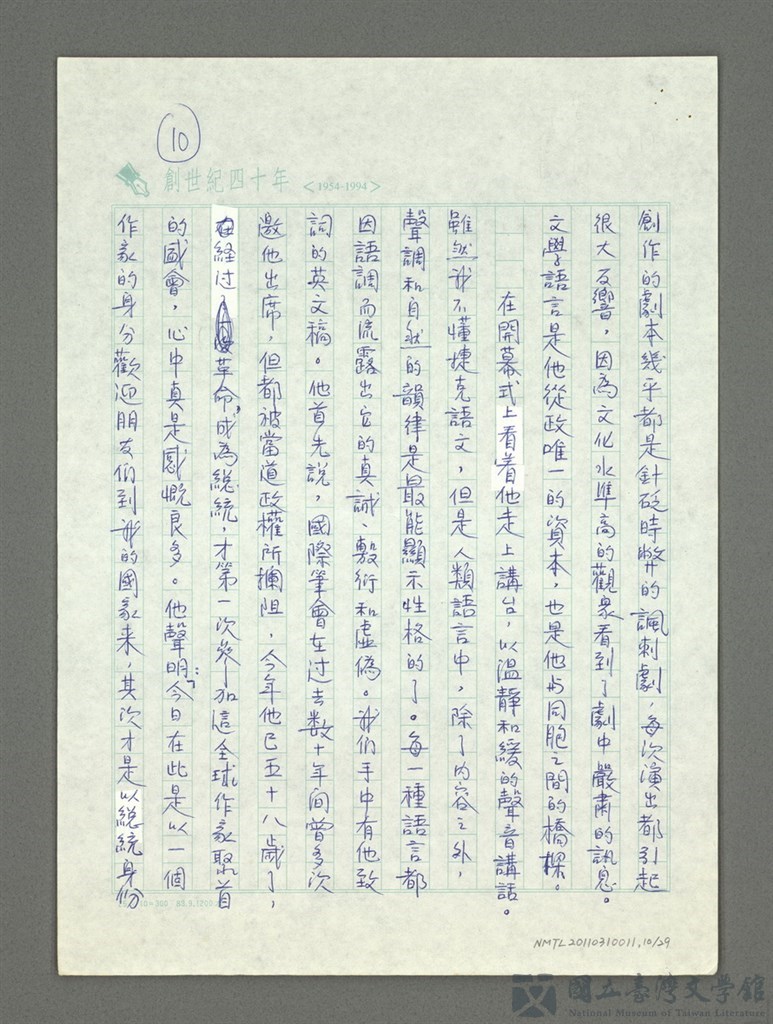 10
創世紀四十年 <1954-1994>
創作的劇本幾乎都是針砭時弊的諷刺劇，每次演出都引起
很大反響，因為文化水準高的觀衆看到了劇中嚴肅的訊息。
文學語言是他從政唯一的資本，也是他与同胞之間的橋樑。
在開幕式上看着他走上講台，以温靜和緩的聲音講話。
雖然我不懂捷克語文，但是人類語言中，除了内容之外，
聲調和自然的韻律是最能顯示性格的了。每一種語言都
因語調而流露出它的真誠、敷衍和虛偽。我们手中有他致
詞的英文稿。他首先說，國際筆會在过去数十年间曾多次
邀他出席，但都被當道政權所攔阻，今年他已五十八歲了，
在経过革命，成為総統，才第一次參加這全球作家聚首
的盛會，心中真是感慨良多。他聲明：「今日在此是以一個
作家的身分歡迎朋友们到我的國家来，其次才是以総統身份
NMTL20110310011,10/29
國立臺灣文學館
National Museum of Taiwan Literature